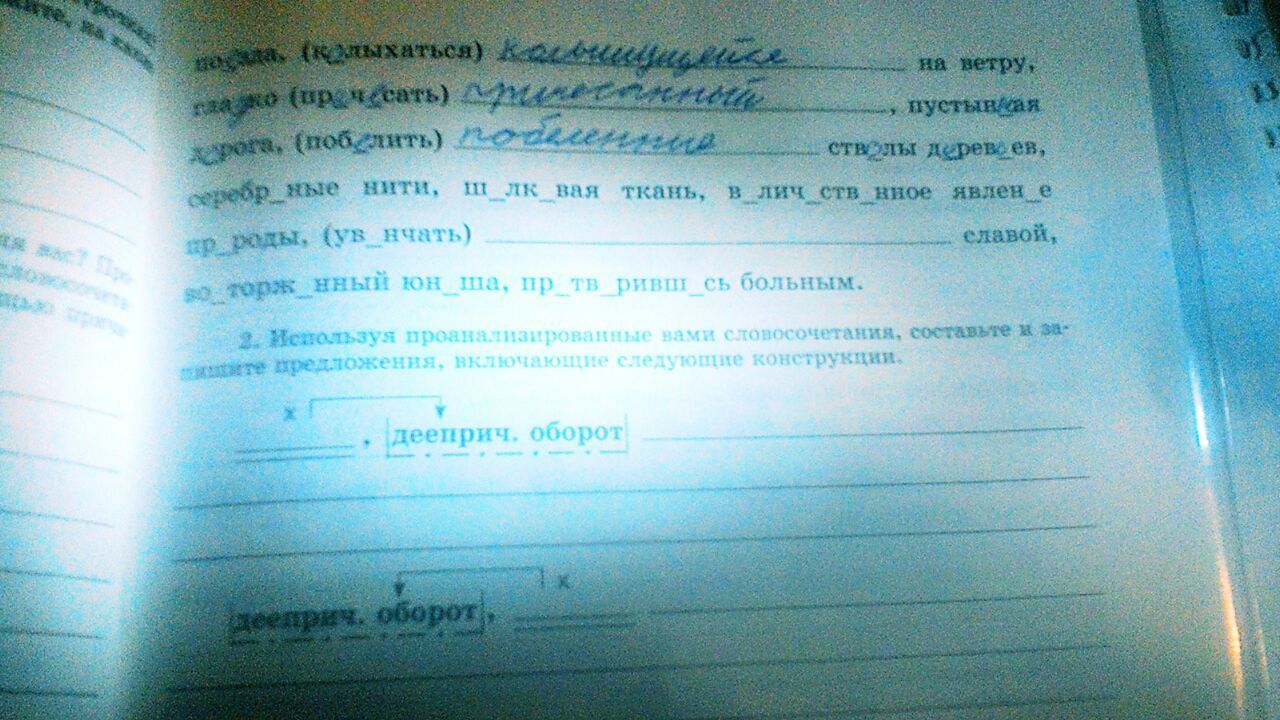 (колыхаться) колышущейся на ветру,
гладко (причесать) причесанный, пустынная
дорога, (побелить) побеленные стволы деревьев,
серебр_ные нити, ш_лк_вая ткань, в_лич_ств_нное явлен_е
пр_роды, (ув_нчать) славой,
во_торж_нный юн_ша, пр_тв_ривш_сь больным.
2. Используя проанализированные вами словосочетания, составьте и за-
пишите предложения, включающие следующие конструкции.
х
, дееприч. оборот
х
дееприч. оборот,